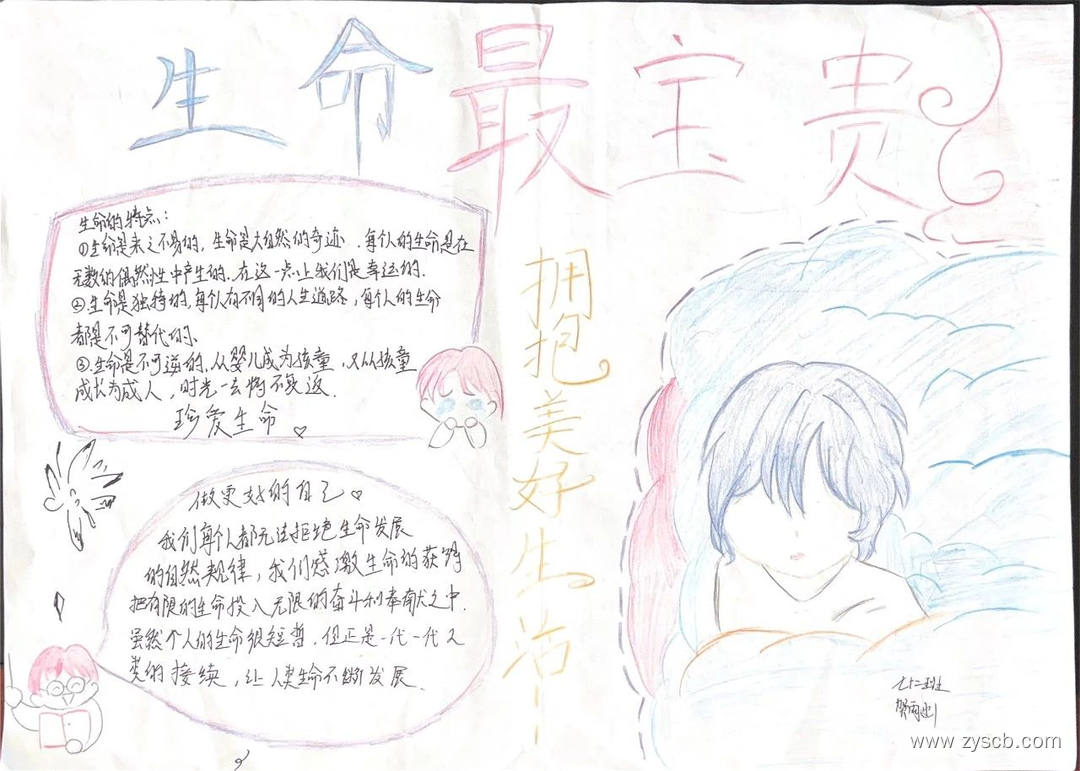 生命最宝贵
生命的特点:
①生命是来之不易的,生命是大自然的奇迹,每个人的生命是在
无数的偶然性中产生的,在这一点上我们是幸运的.
②生命是独特的,每个人有不同的人生道路,每个人的生命
都是不可替代的、
③生命是不可逆的,从婴儿成为孩童,又从孩童
成长为成人,时光一去将不复返.
珍爱生命
拥抱美好生活
做更好的自己
我们每个人都无法拒绝生命发展
的自然规律,我们感激生命的获得
把有限的生命投入无限的奋斗和奉献之中.
虽然个人的生命很短暂,但正是一代一代人
类的接续,让人类生命不断发展.
七十二班
www.zyscb.com